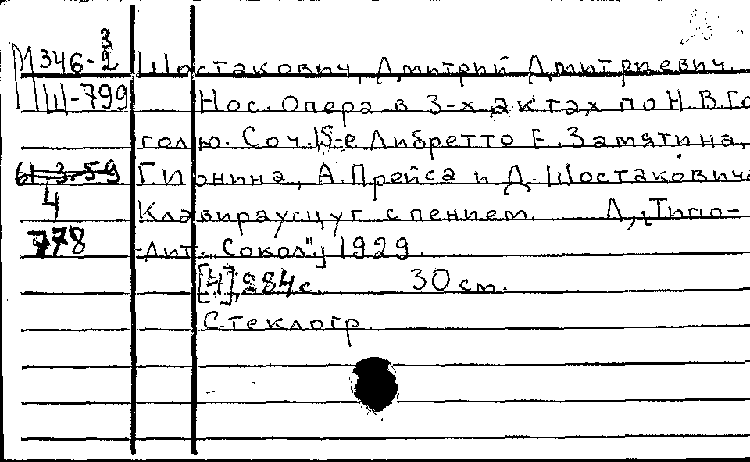 М346-3/2 Шостакович, Дмитрий Дмитриевич.
ПШ-799 Нос. Опера в 3-х актах по Н.В.Го
голю. Соч. 15-е Либретто Е. Замятина,
Г. Ионина, А. Прейса и Д. Шостаковича
4 Клавираусцуг с пением. Л, „Типо-
778 -Лит. Сокол", 1929.
[4], 284 с. 30 см.
Стеклогр.